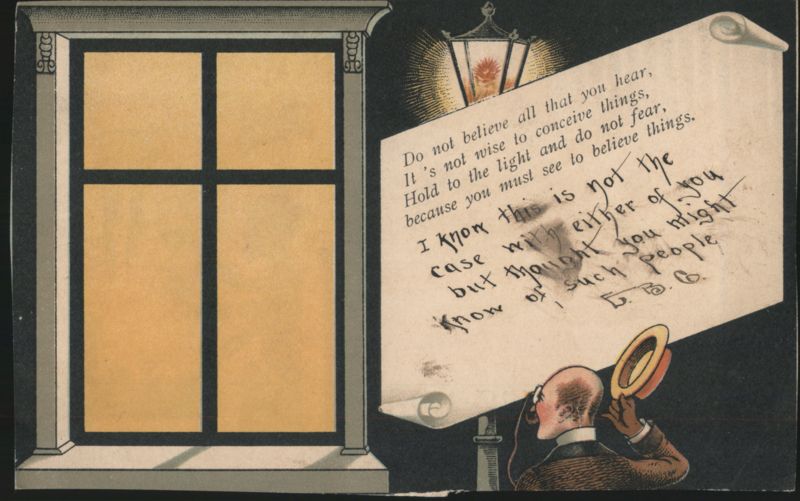 Do not believe all that you hear,
It 's not wise to conceive things,
Hold to the light and do not fear,
because you must see to believe things.
I know this is not the
case with either of you
but thought you might
know of, such people,
E. B. C.